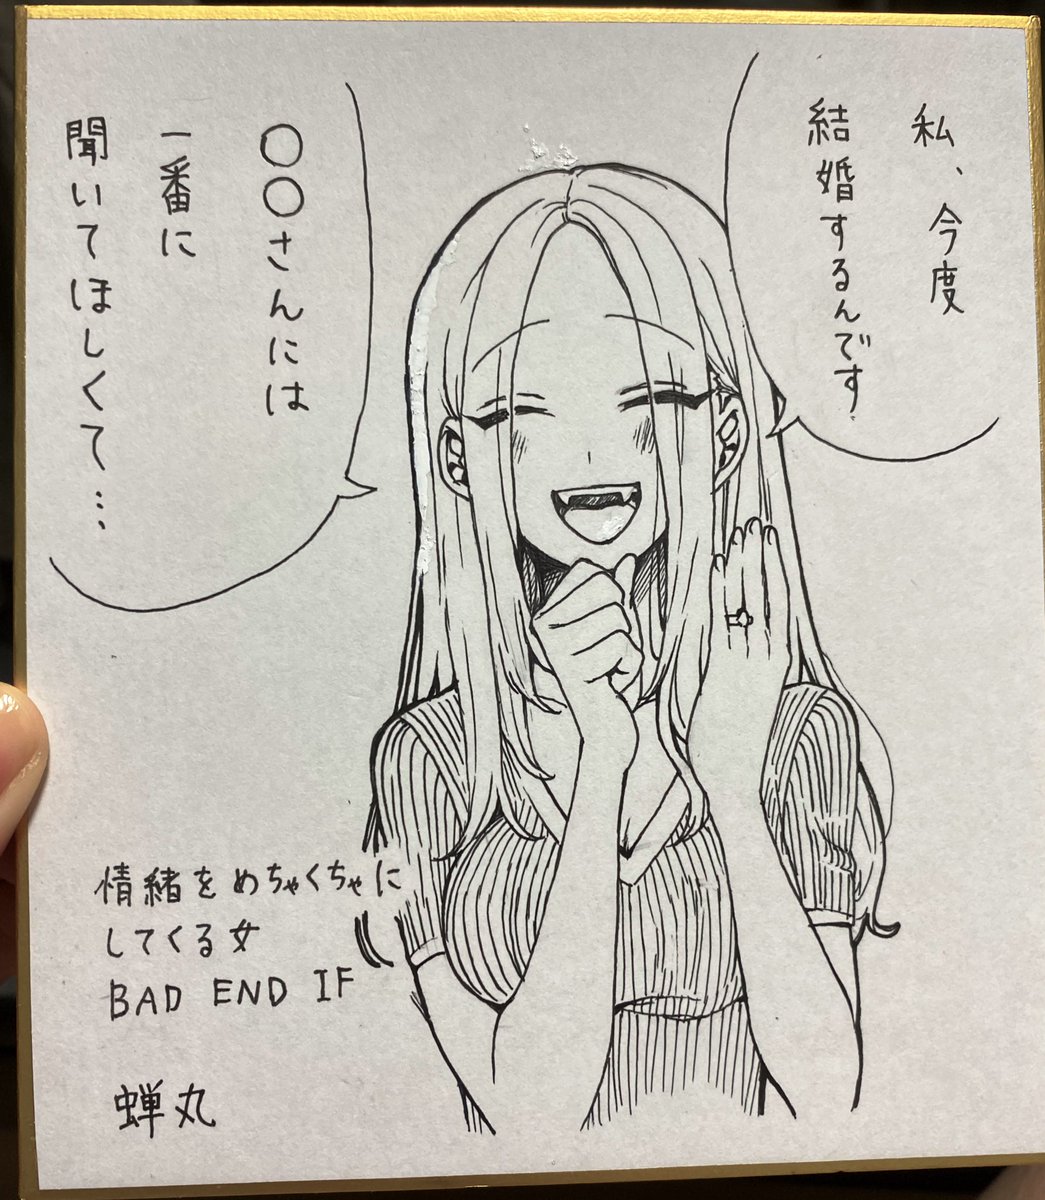 私、今度
結婚するんです
〇〇さんには
一番に
聞いてほしくて…
情緒をめちゃくちゃに
してくる女
BAD END IF
蝉丸